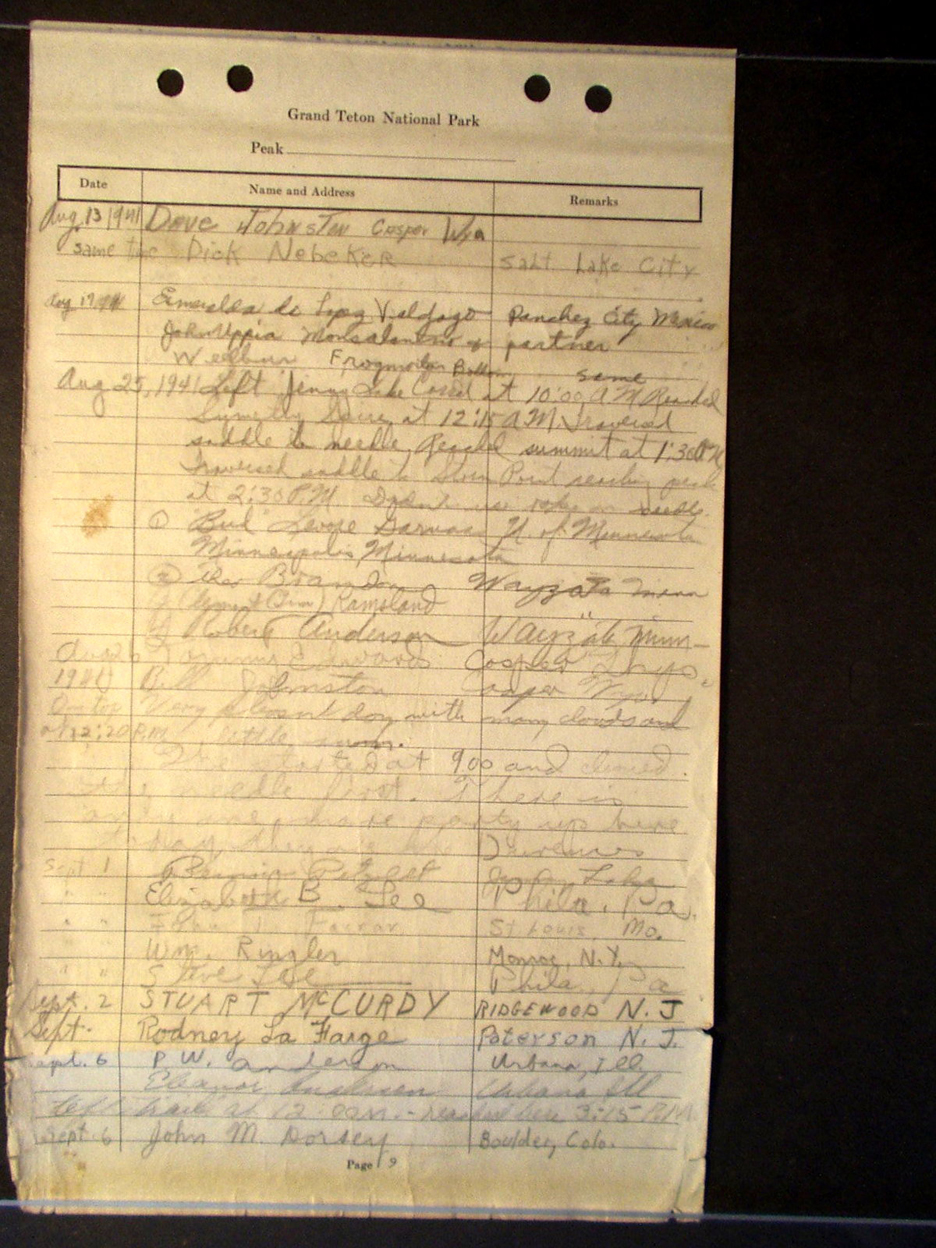 Grand Teton National Park
Peak
Date Name and Address Remarks
Aug. 13 1941 Dave Johnston Casper Wyo
same time Dick Nebeker Salt Lake City
Aug 17 Esmeralda de Lopez Panchez City Mexico
partner
Frogmorton Bottom same
Aug 25, 1941 Left Jenny Lake at 10:00 A.M. Reached
at 12:15 A.M. Traversed
saddle to needle, Reached summit at 1:30 P.M
Traversed saddle to Storm Point reaching peak
at 2:30 P.M. Didn't use rope on needle.
① "Bud" U of Minnesota
Minneapolis, Minnesota
② Theo Brandon Wayzata Minn
Ramsland
Robert Anderson Wayzata Minn-
Tommy Edwards Casper Wyo.
1941 Bill Johnston Casper Wyo.
On top Very pleasant day with many clouds and
at 12:20 P.M. little
We started at 9 00 and climed
the needle first. There is
one more party up here
today they are the
Sept 1 Bennie Jenny Lake
" " Elizabeth B. Lee Phila., Pa.
" " St Louis Mo.
Wm. Ringler Monroe, N.Y.
" " Steve Lee Phila., Pa
Sept. 2 STUART McCURDY RIDGEWOOD N. J
Sept- Rodney La Farge Paterson N. J.
Sept. 6 P W. Anderson Urbana, Ill
Eleanor Anderson Urbana, Ill
left trail at 12:00 - reached here 3:15 P.M.
Sept 6 John M. Dorsey Boulder, Colo.
Page 9